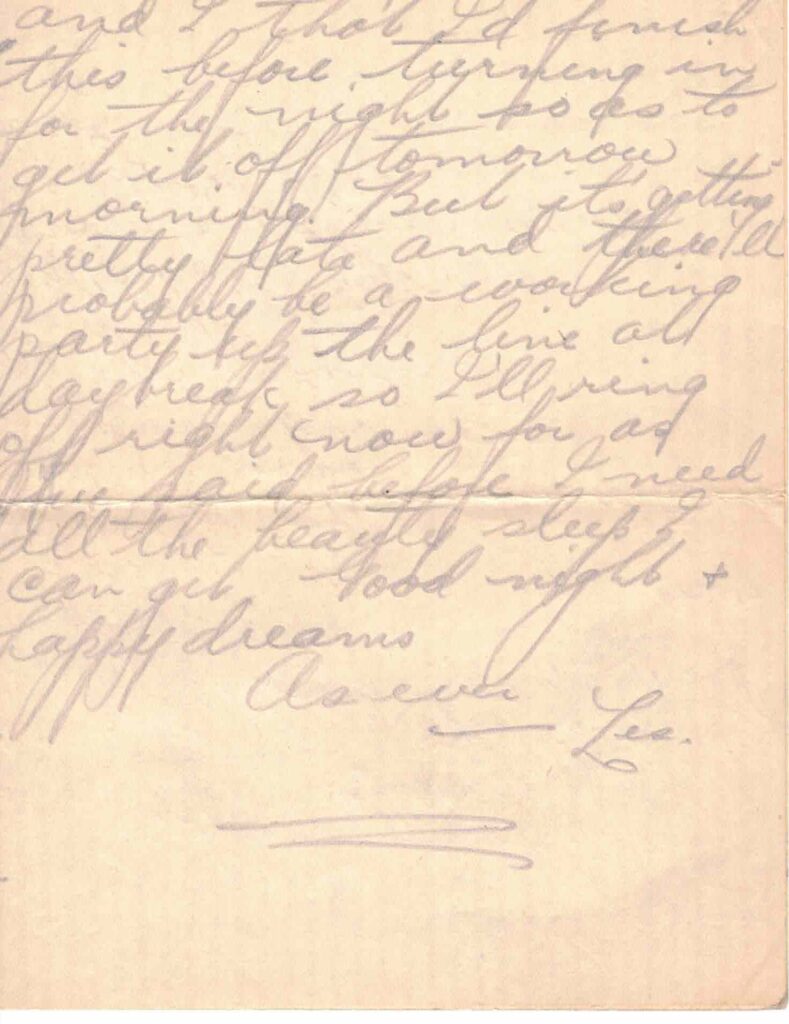 and I tho't I'd finish
this before turning in
for the night so as to
get it off tomorrow
morning. But it's getting
pretty late and there'll
probably be a working
party up the line at
daybreak so I'll ring
off right now for as
I've said before I need
all the beauty sleep I
can get Good night +
happy dreams
As ever
— Les.